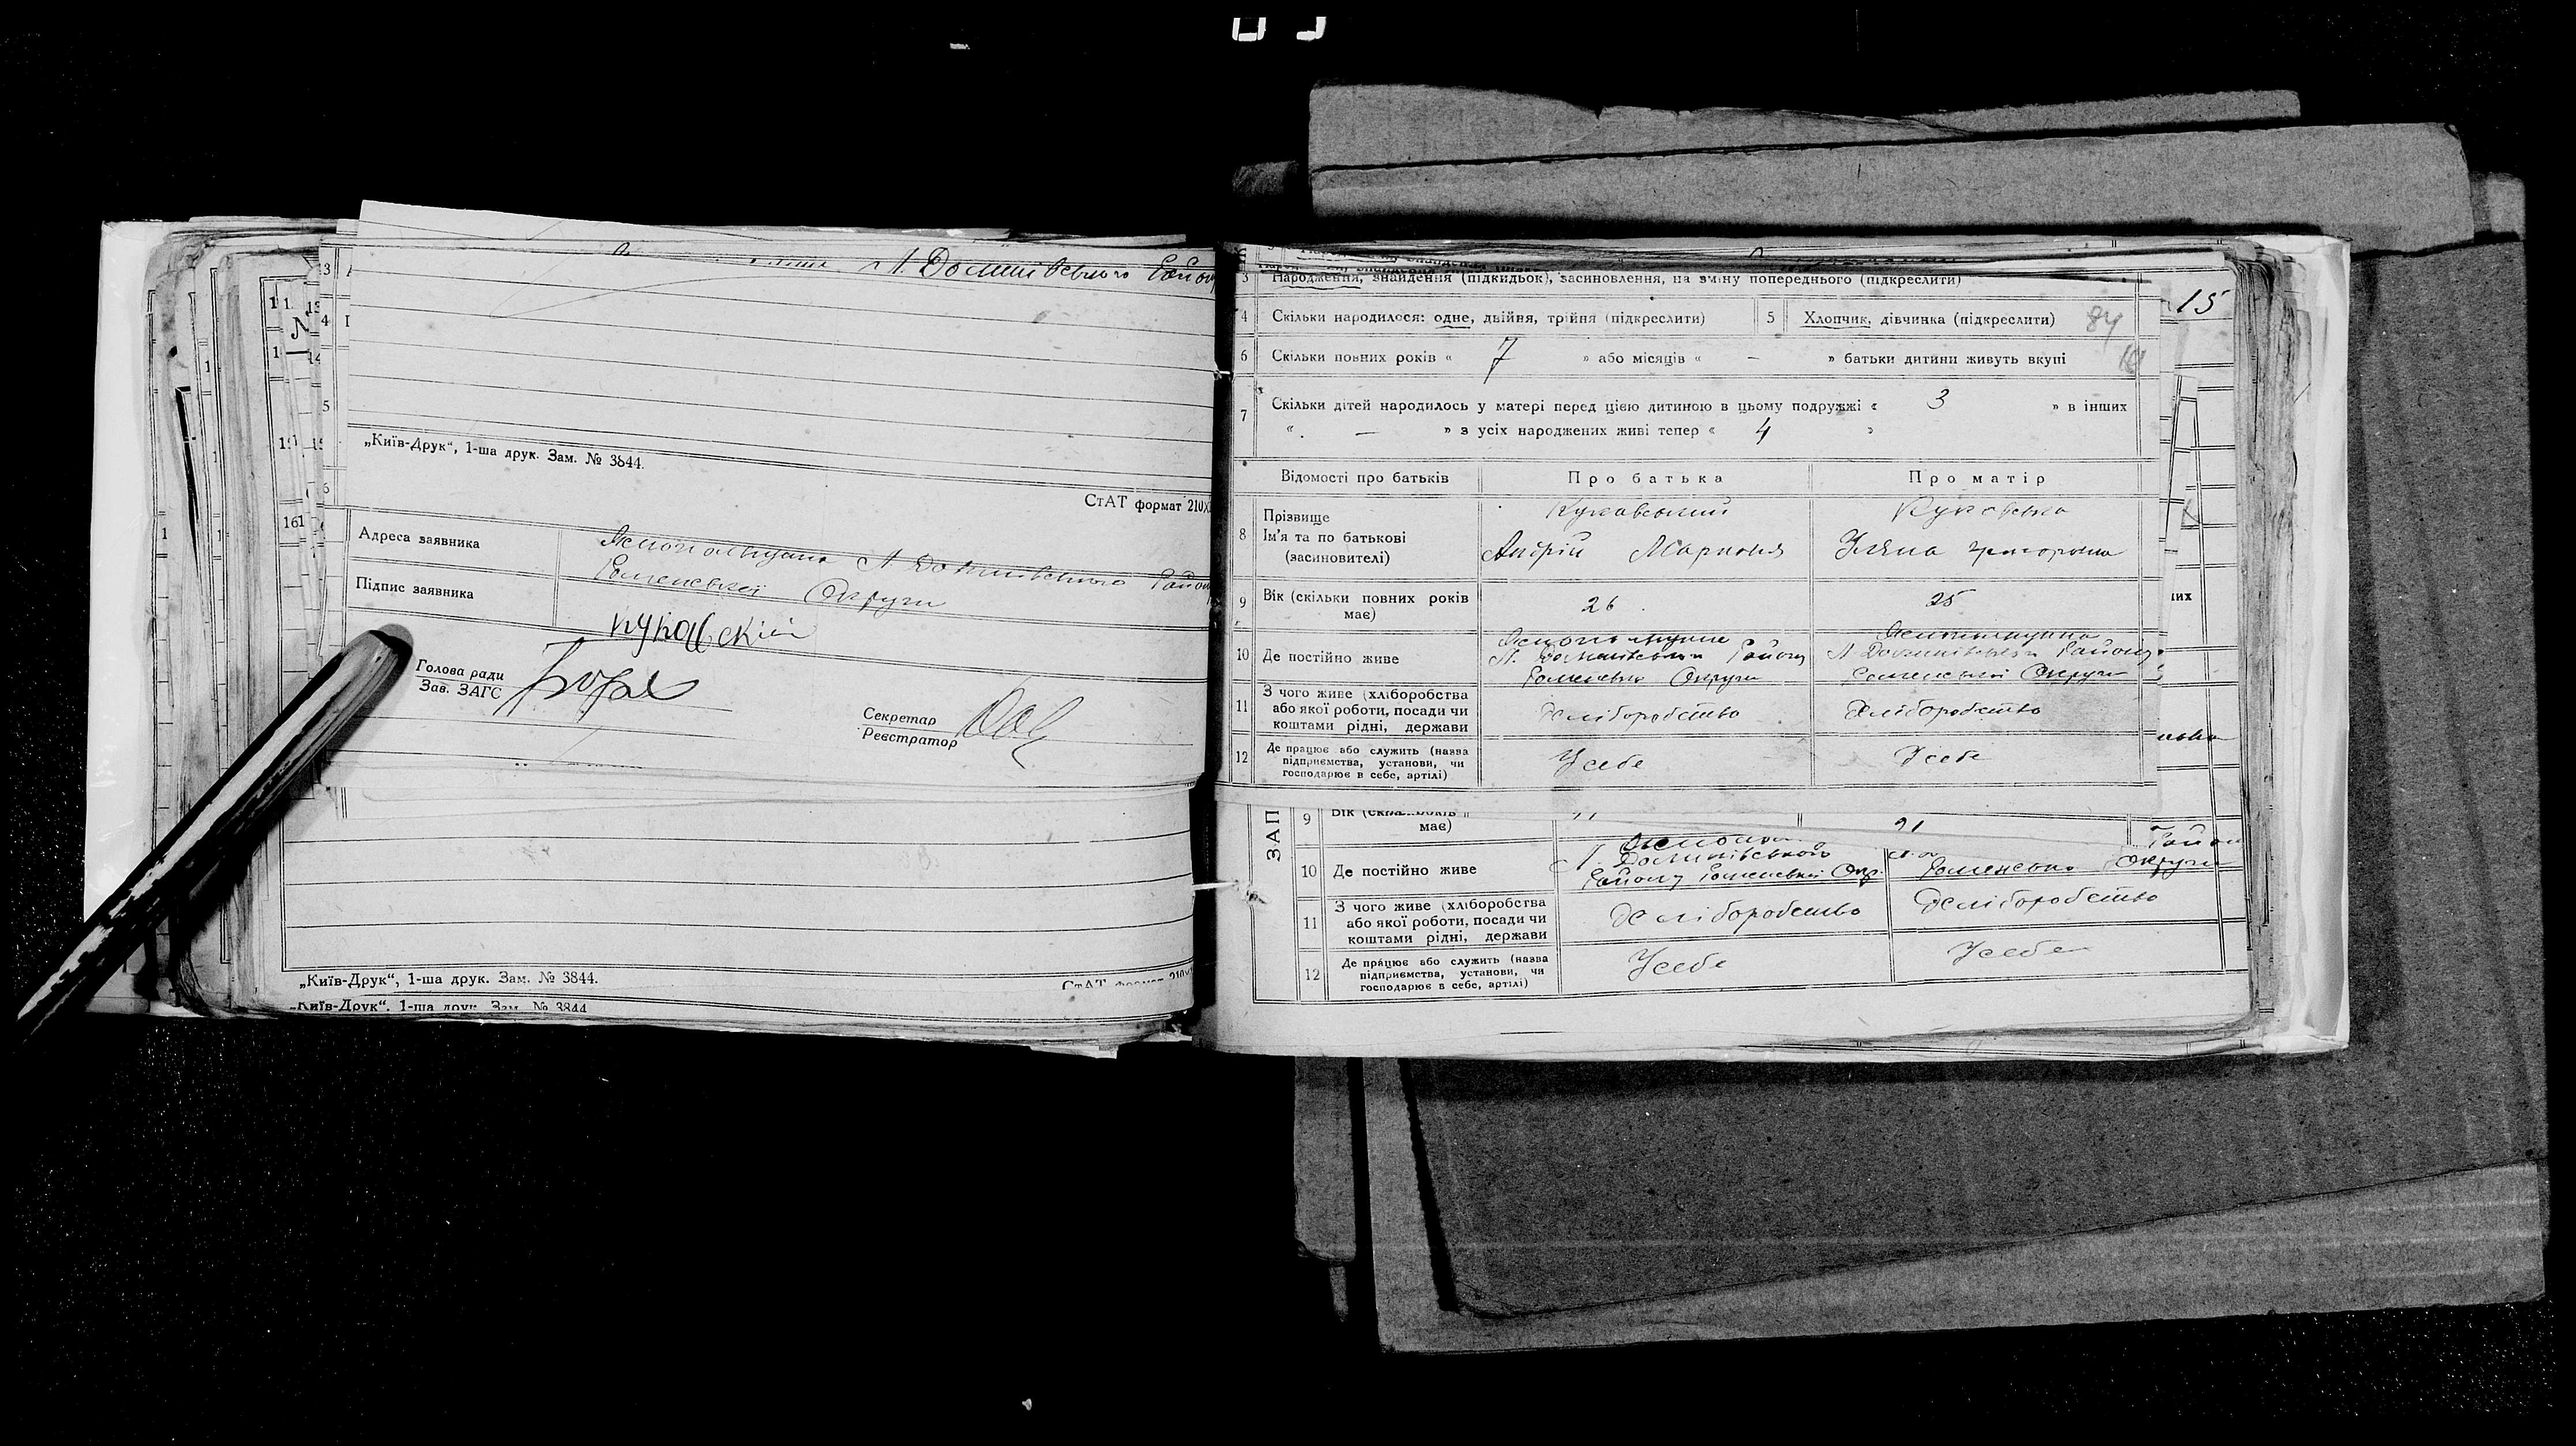 Л. Долинівського Району
„Київ-Друк“, 1-ша друк. Зам. № 3844.
СтАТ формат 210X
Адреса заявника
Л Долинівського Району
Роменської Округи
Підпис заявника
кукавскій
Голова ради
Зав. ЗАГС
Секретар
Реєстратор
„Київ-Друк“, 1-ша друк. Зам. № 3844.
„Київ-Друк“, 1-ша друк. Зам. № 3844
15
3 Народження, знайдення (підкидьок), засиновлення, на зміну попереднього (підкреслити)
4 Скільки народилося: одне, двійня, трійня (підкреслити) 5 Хлопчик, дівчинка (підкреслити) 84
6 Скільки повних років « 7 » або місяців « – » батьки дитини живуть вкупі
7 Скільки дітей народилось у матері перед цією дитиною в цьому подружжі « 3 » в інших
« – » з усіх народжених живі тепер « 4 »
Відомості про батьків Про батька Про матір
8 Прізвище Кукавський Кукавська
Ім'я та по батькові
(засиновителі) Андрій Маркович Уляна Григоровна
9 Вік (скільки повних років має) 26 25
10 Де постійно живе
Л. Долинівського Району Л Долинівського Району
Роменської Округи Роменської Округи
11 З чого живе (хліборобства
або якої роботи, посади чи
коштами рідні, держави
Хліборобство Хліборобство
12 Де працює або служить (назва
підприємства, установи, чи
господарює в себе, артілі)
У себе У себе
ЗАП
9 Вік
має) 21
10 Де постійно живе
Л. Долинівського Район
Району Роменської Окр. Роменської Округи
11 З чого живе (хліборобства
або якої роботи, посади чи
коштами рідні, держави
Хліборобство Хліборобство
12 Де працює або служить (назва
підприємства, установи, чи
господарює в себе, артілі)
У себе У себе